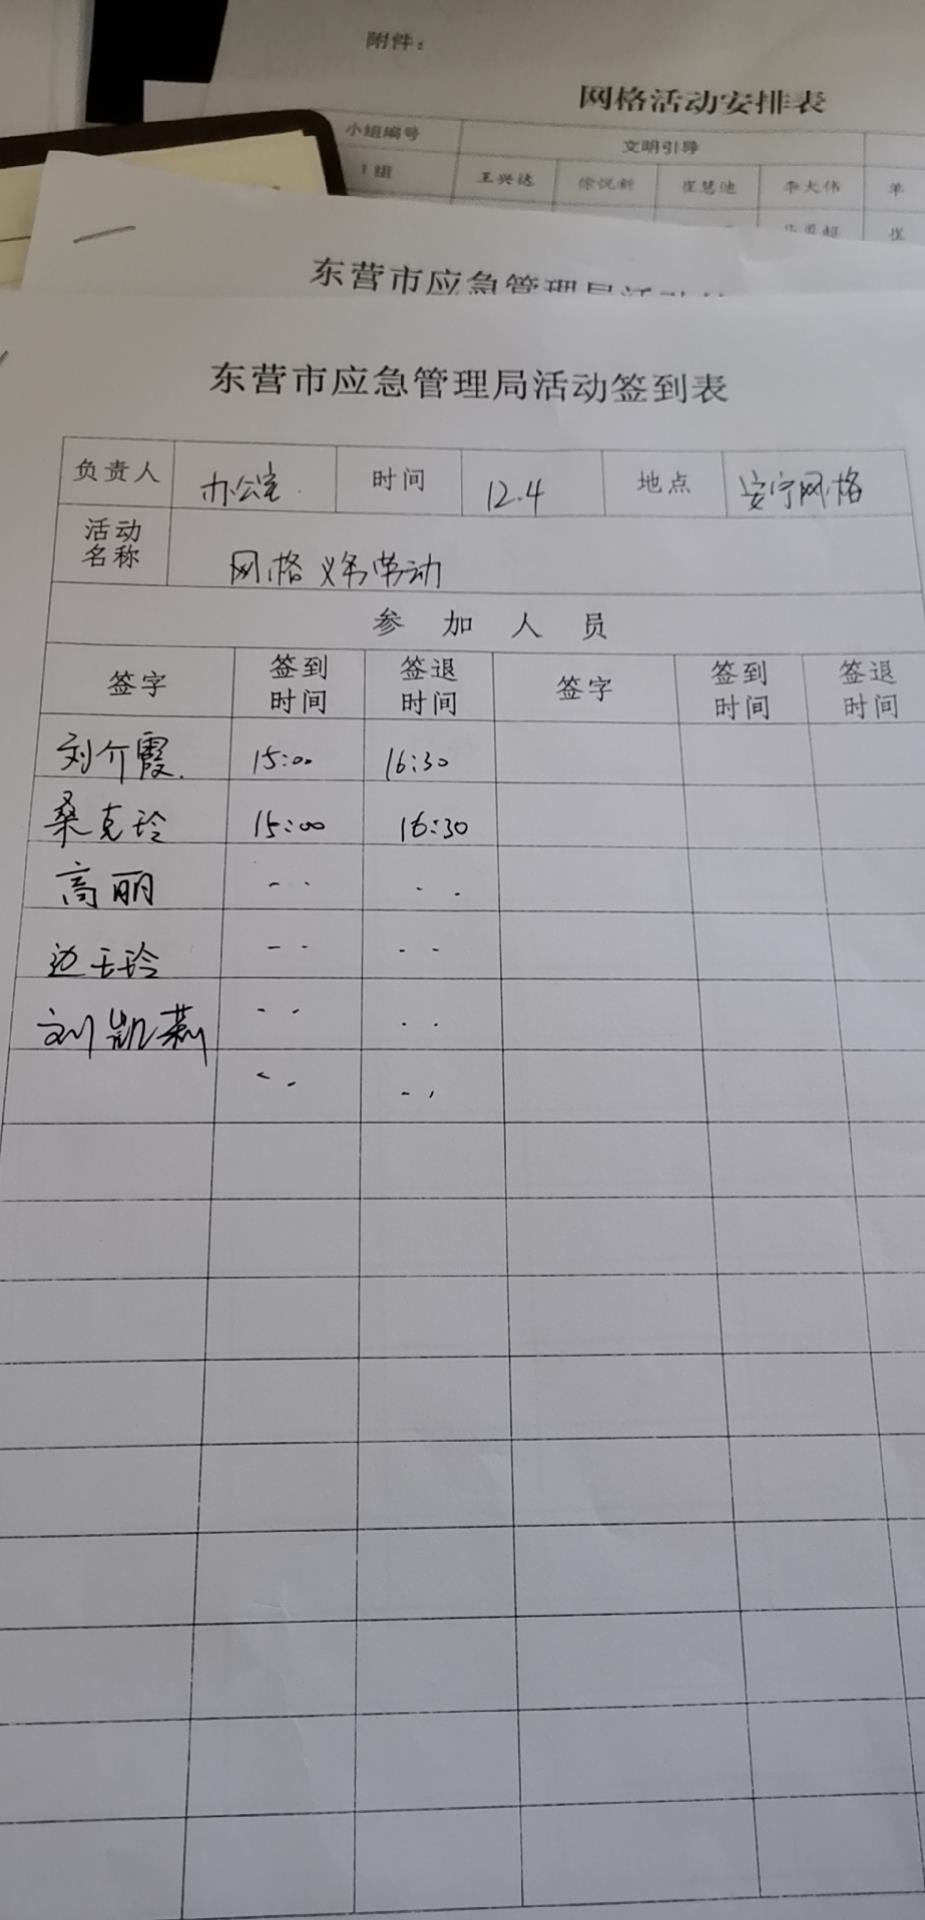 附件：
网格活动安排表
小组编号 文明引导
1组 王兴达 徐悦新 崔慧迪 李大伟 单
崔
东营市应急管理局活动
东营市应急管理局活动签到表
负责人 办公室 时间 12.4 地点 安宁网格
活动名称 网格义务劳动
参加人员
签字 签到时间 签退时间 签字 签到时间 签退时间
刘介霞 15:00 16:30
桑克玲 15:00 16:30
高丽 - - - -
边玉玲 - - - -
刘凯莉 - - - -
- - - -